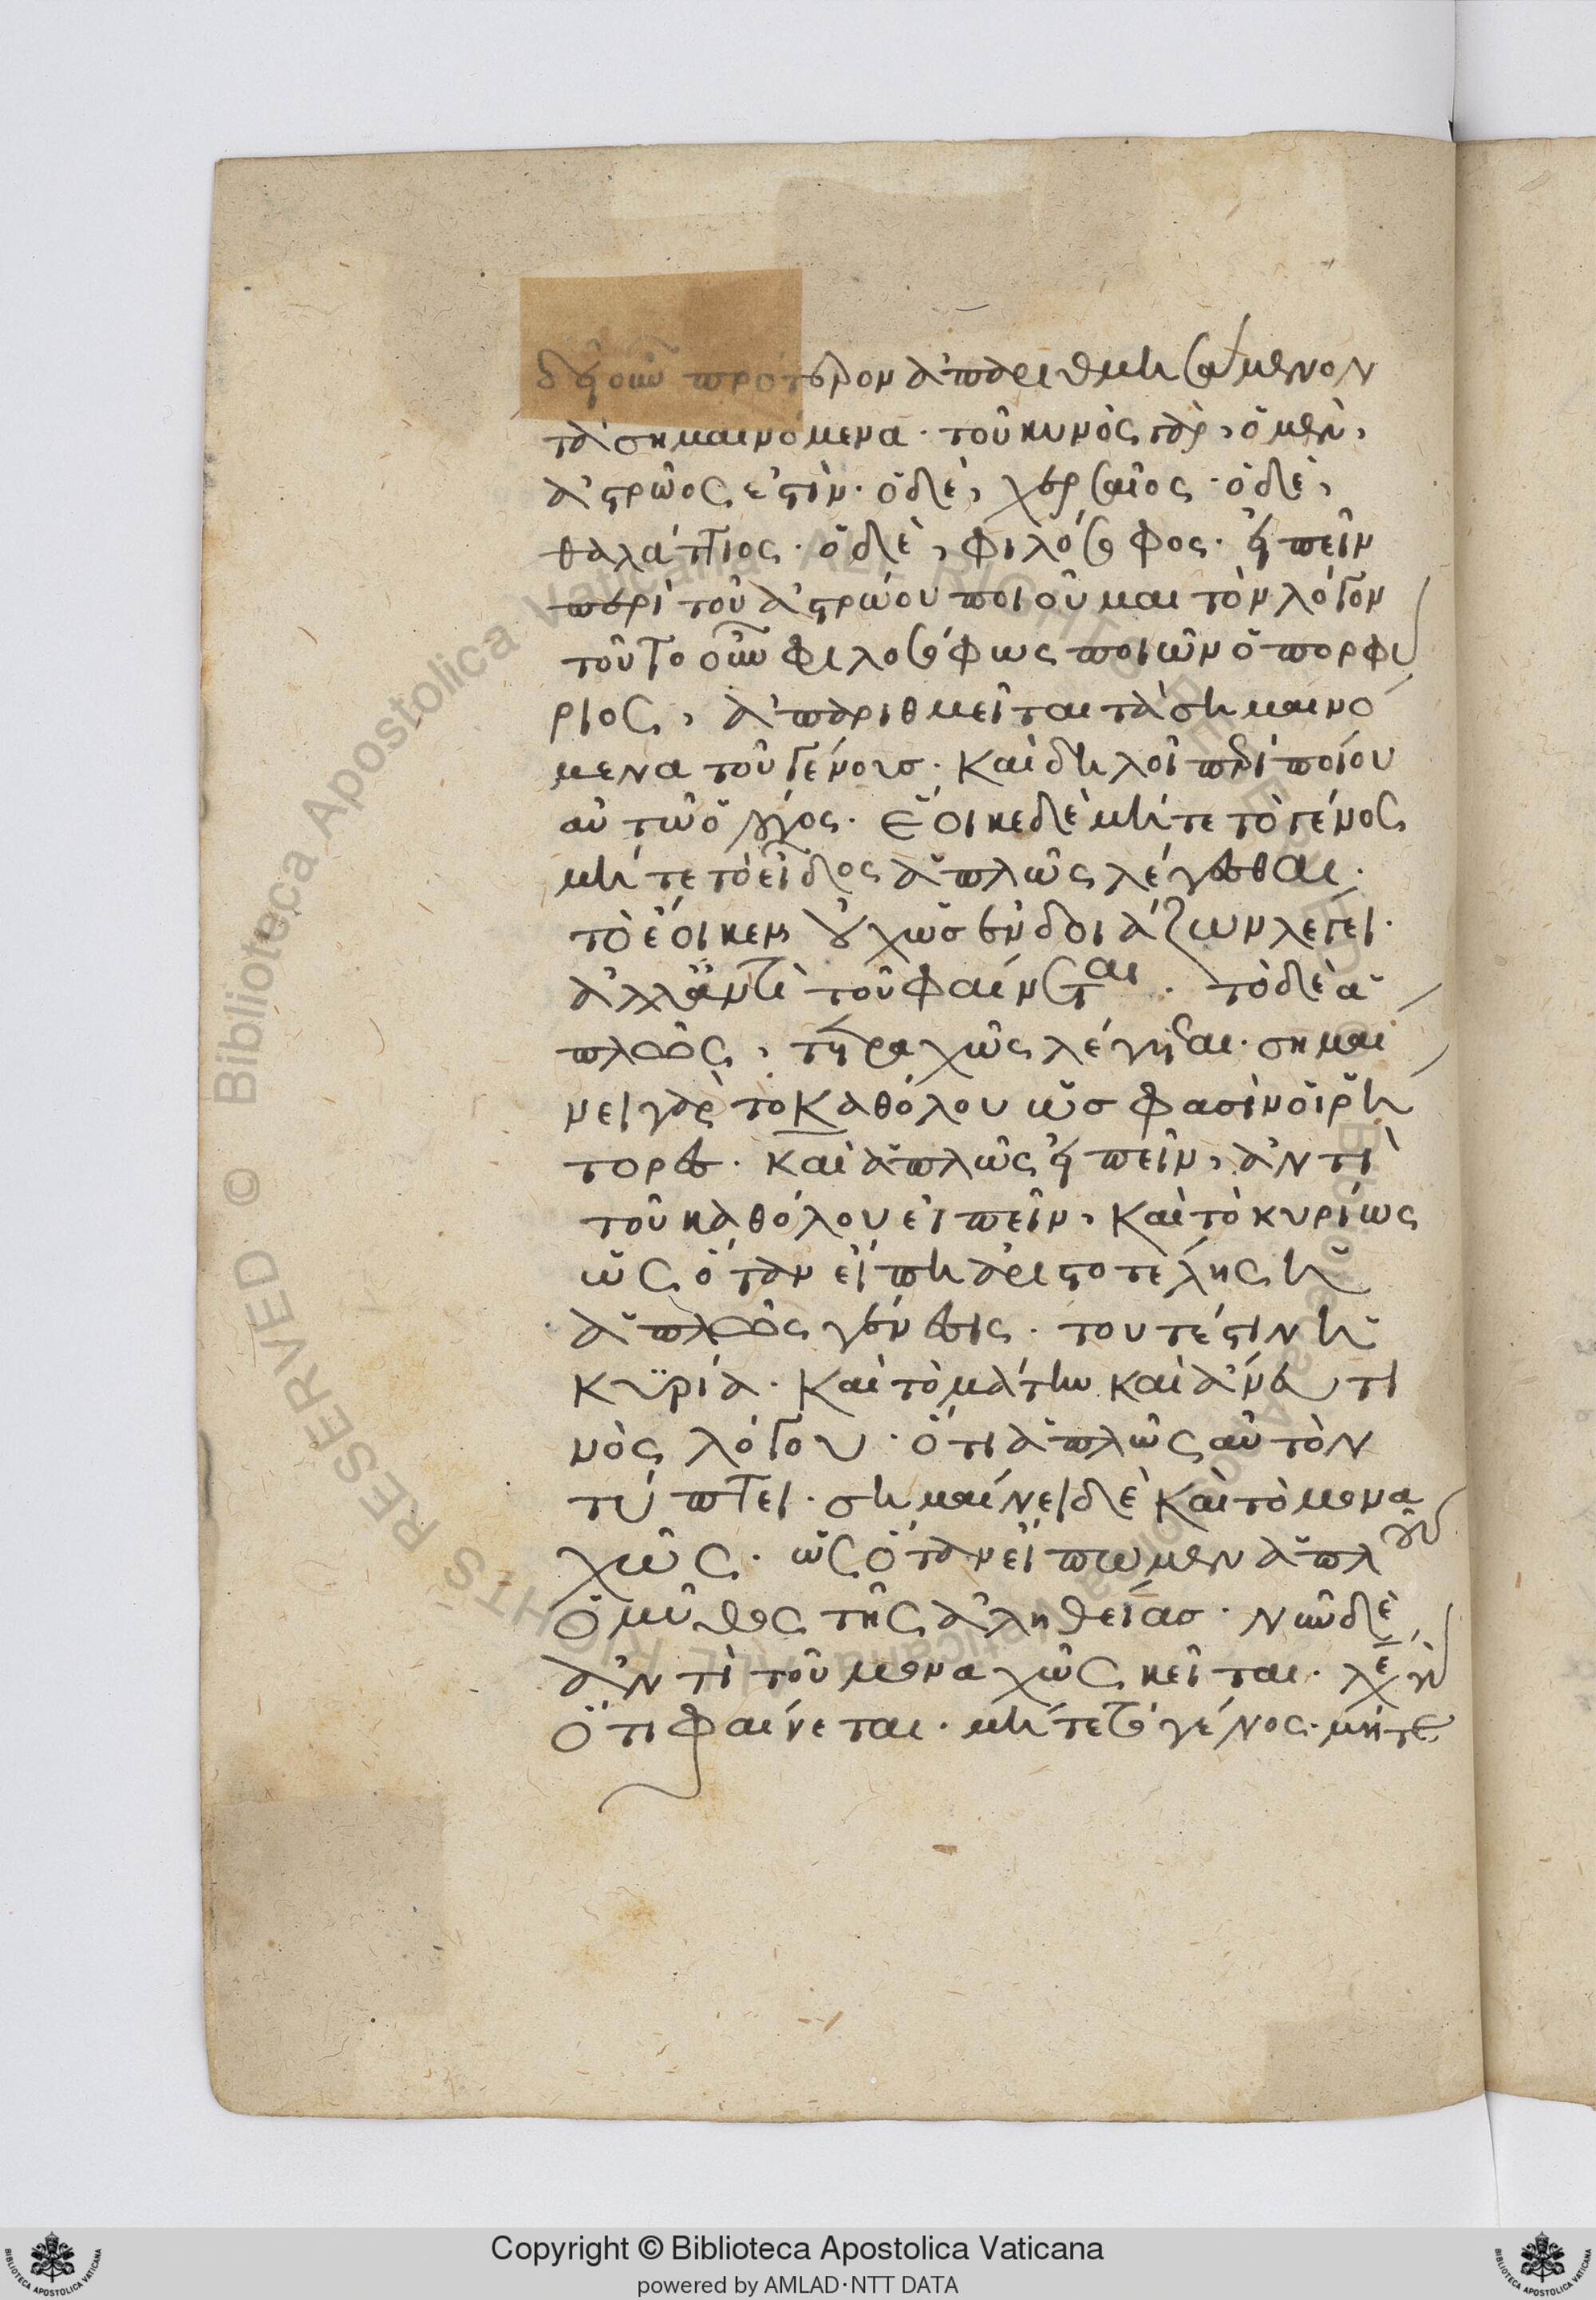 δεῖ οὖν πρότερον ἀπαριθμησάμενον
τὰ σημαινόμενα· τοῦ κυνὸς γὰρ, ὁ μὲν,
ἀστρῶος ἐστίν· ὁ δὲ, χερσαῖος· ὁ δὲ,
θαλάττιος· ὁ δὲ, φιλόσοφος· εἰπεῖν
περὶ τοῦ ἀστρώου ποιοῦμαι τὸν λόγον
τοῦτο οὖν φιλοσόφως ποιῶν ὁ πορφύ
ριος, ἀπαριθμεῖται τὰ σημαινό
μενα τοῦ γένους· καὶ δηλοῖ περὶ ποίου
αὐτῶ ὁ λόγος· ἔοικε δὲ μήτε τὸ γένος
μήτε τὸ εἶδος ἁπλῶς λέγεσθαι·
τὸ ἔοικεν οὐχ ὡς ἐνδοιάζων λέγει·
ἀλλ' ἀντὶ τοῦ φαίνεται· τὸ δὲ ἁ
πλῶς, τετραχῶς λέγεται· σημαί
νει γὰρ τὸ καθόλου ὥς φασὶν οἱ ῥή
τορες· καὶ ἁπλῶς εἰπεῖν, ἀντὶ
τοῦ καθόλου εἰπεῖν, καὶ τὸ κυρίως
ὡς ὅταν εἴπη ἀριστοτέλης ἡ
ἁπλῶς γένεσις· τουτέστιν ἡ
κϋρία· καὶ τὸ μάτην καὶ ἄνευ τι
νὸς λόγου· ὅτι ἁπλῶς αὐτὸν
τύπτει· σημαίνει δὲ καὶ τὸ μονα
χῶς· ὡς ὅταν εἴπωμεν ἁπλοῦς
ὁ μῦθος τῆς ἀληθείας· νῦν δὲ,
ἀντὶ τοῦ μοναχῶς κεῖται· λέγει
ὅτι φαίνεται· μήτε τὸ γένος· μήτε
Copyright © Biblioteca Apostolica Vaticana
powered by AMLAD·NTT DATA